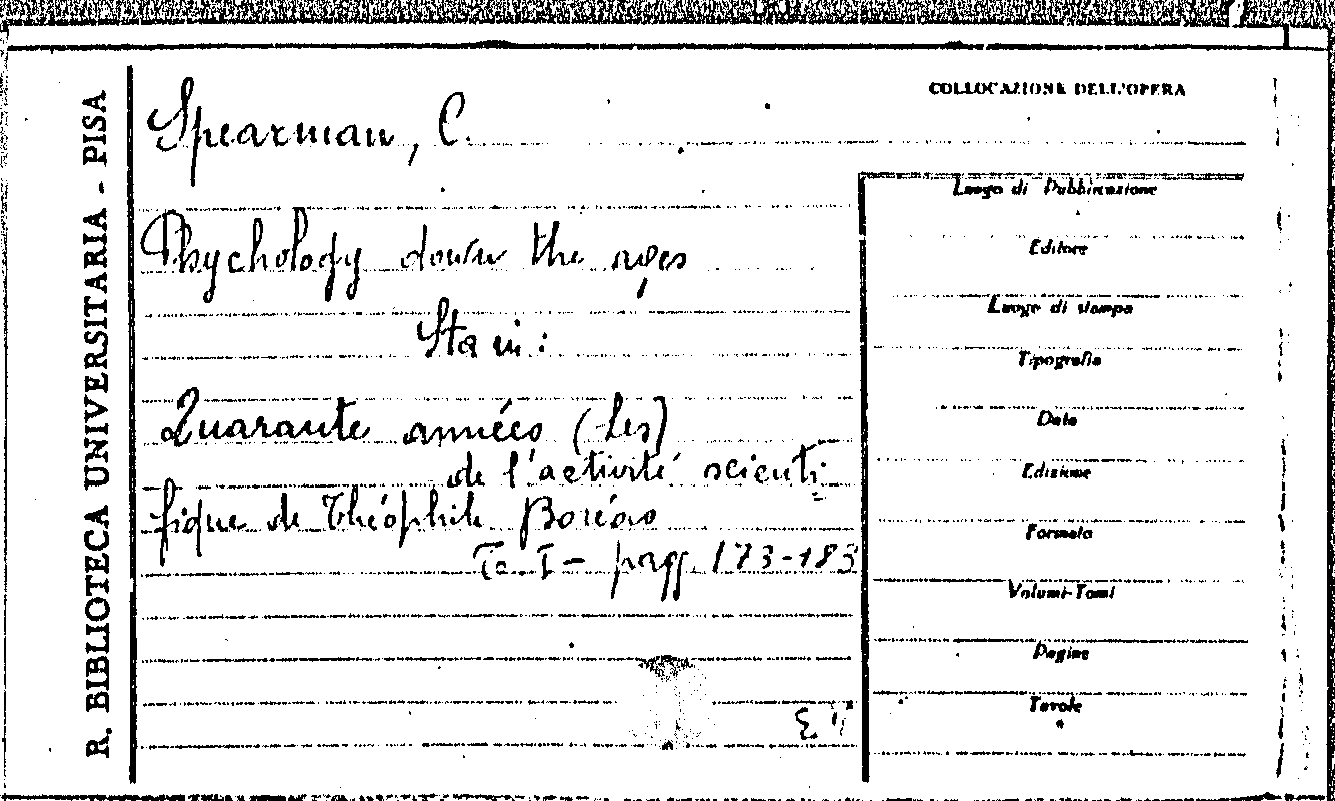 R. BIBLIOTECA UNIVERSITARIA - PISA
Spearman, C.
Psychology down the ages
Sta in:
Quarante années (Les)
de l'activité scienti-
fique de Théophile Boréas
To. I - pagg. 173-183
COLLOCAZIONE DELL'OPERA
Luogo di Pubblicazione
Editore
Luogo di stampa
Tipografia
Data
Edizione
Formato
Volumi-Tomi
Pagine
Tavole